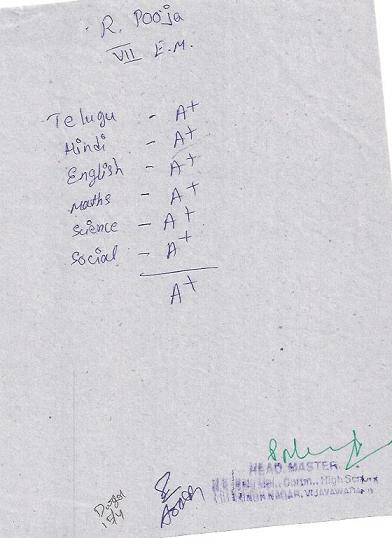 R. Pooja
VII E.M.
Telugu - A+
Hindi - A+
English - A+
Maths - A+
Science - A+
Social - A+
A+
HEAD MASTER
Corpn., High School
NAGAR, VIJAYAWADA